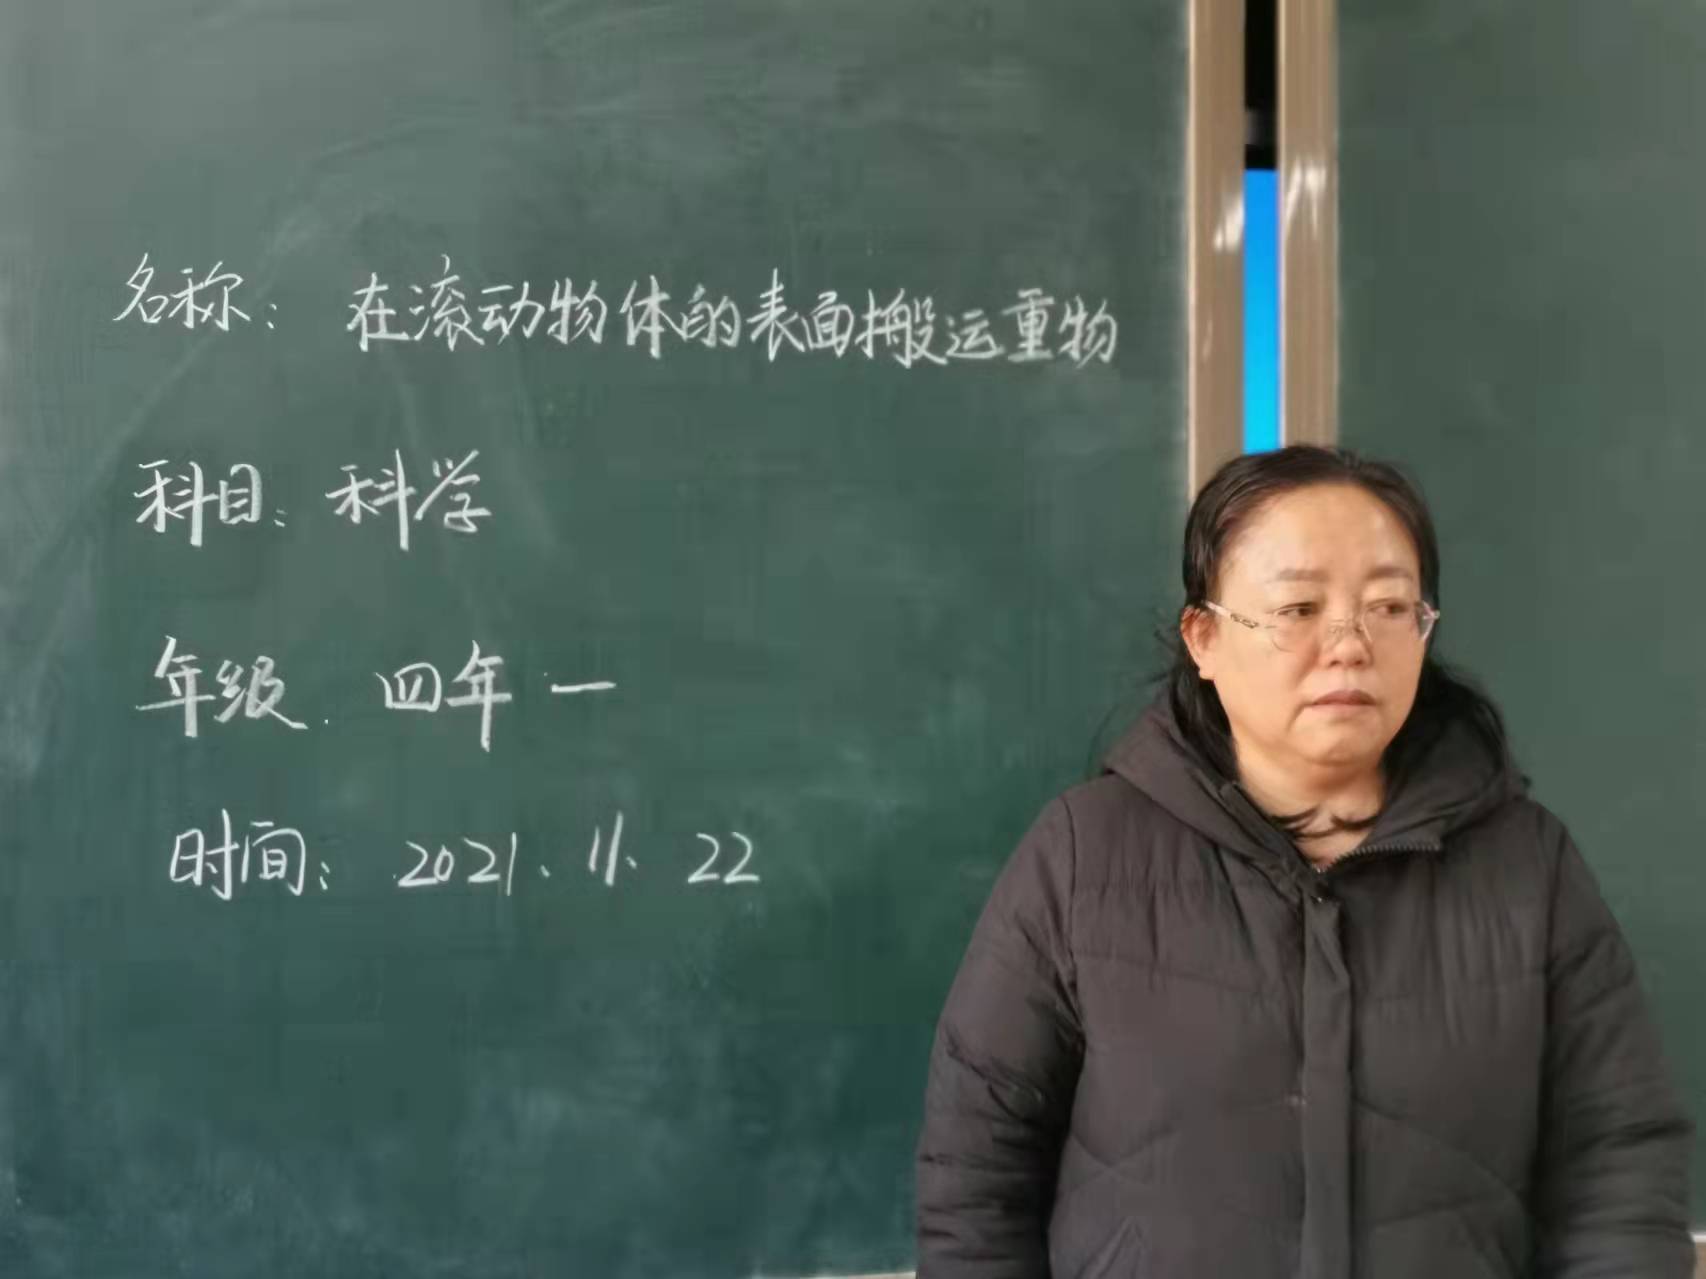 名称：在滚动物体的表面搬运重物
科目：科学
年级．四年一
时间：2021、11、22